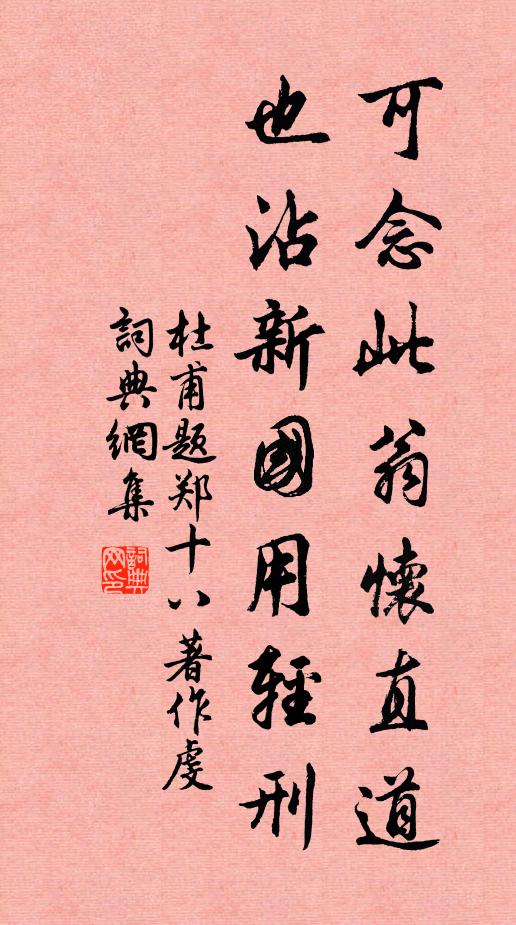 可念此翁懷直道
也沾新國用輕刑
杜甫题郑十八著作虔
詞典網集
詞典网印